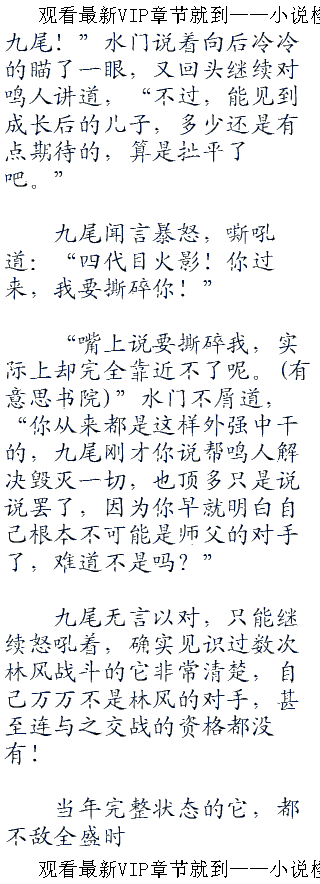 观看最新VIP章节就到——小说
九尾！”水门说着向后冷冷
的瞄了一眼，又回头继续对
鸣人讲道，“不过，能见到
成长后的儿子，多少还是有
点期待的，算是扯平了
吧。”
九尾闻言暴怒，嘶吼
道：“四代目火影！你过
来，我要撕碎你！”
“嘴上说要撕碎我，实
际上却完全靠近不了呢。(有
意思书院)”水门不屑道，
“你从来都是这样外强中干
的，九尾刚才你说帮鸣人解
决毁灭一切，也顶多只是说
说罢了，因为你早就明白自
己根本不可能是师父的对手
了，难道不是吗？”
九尾无言以对，只能继
续怒吼着，确实见识过数次
林风战斗的它非常清楚，自
己万万不是林风的对手，甚
至连与之交战的资格都没
有！
当年完整状态的它，都
不敌全盛时
观看最新VIP章节就到——小说